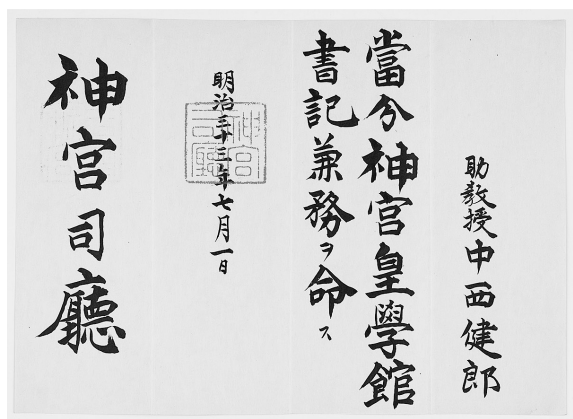 助教授中西健郎
當分神宮皇學館
書記兼務ヲ命ス
明治三十三年七月一日
神宮司廳